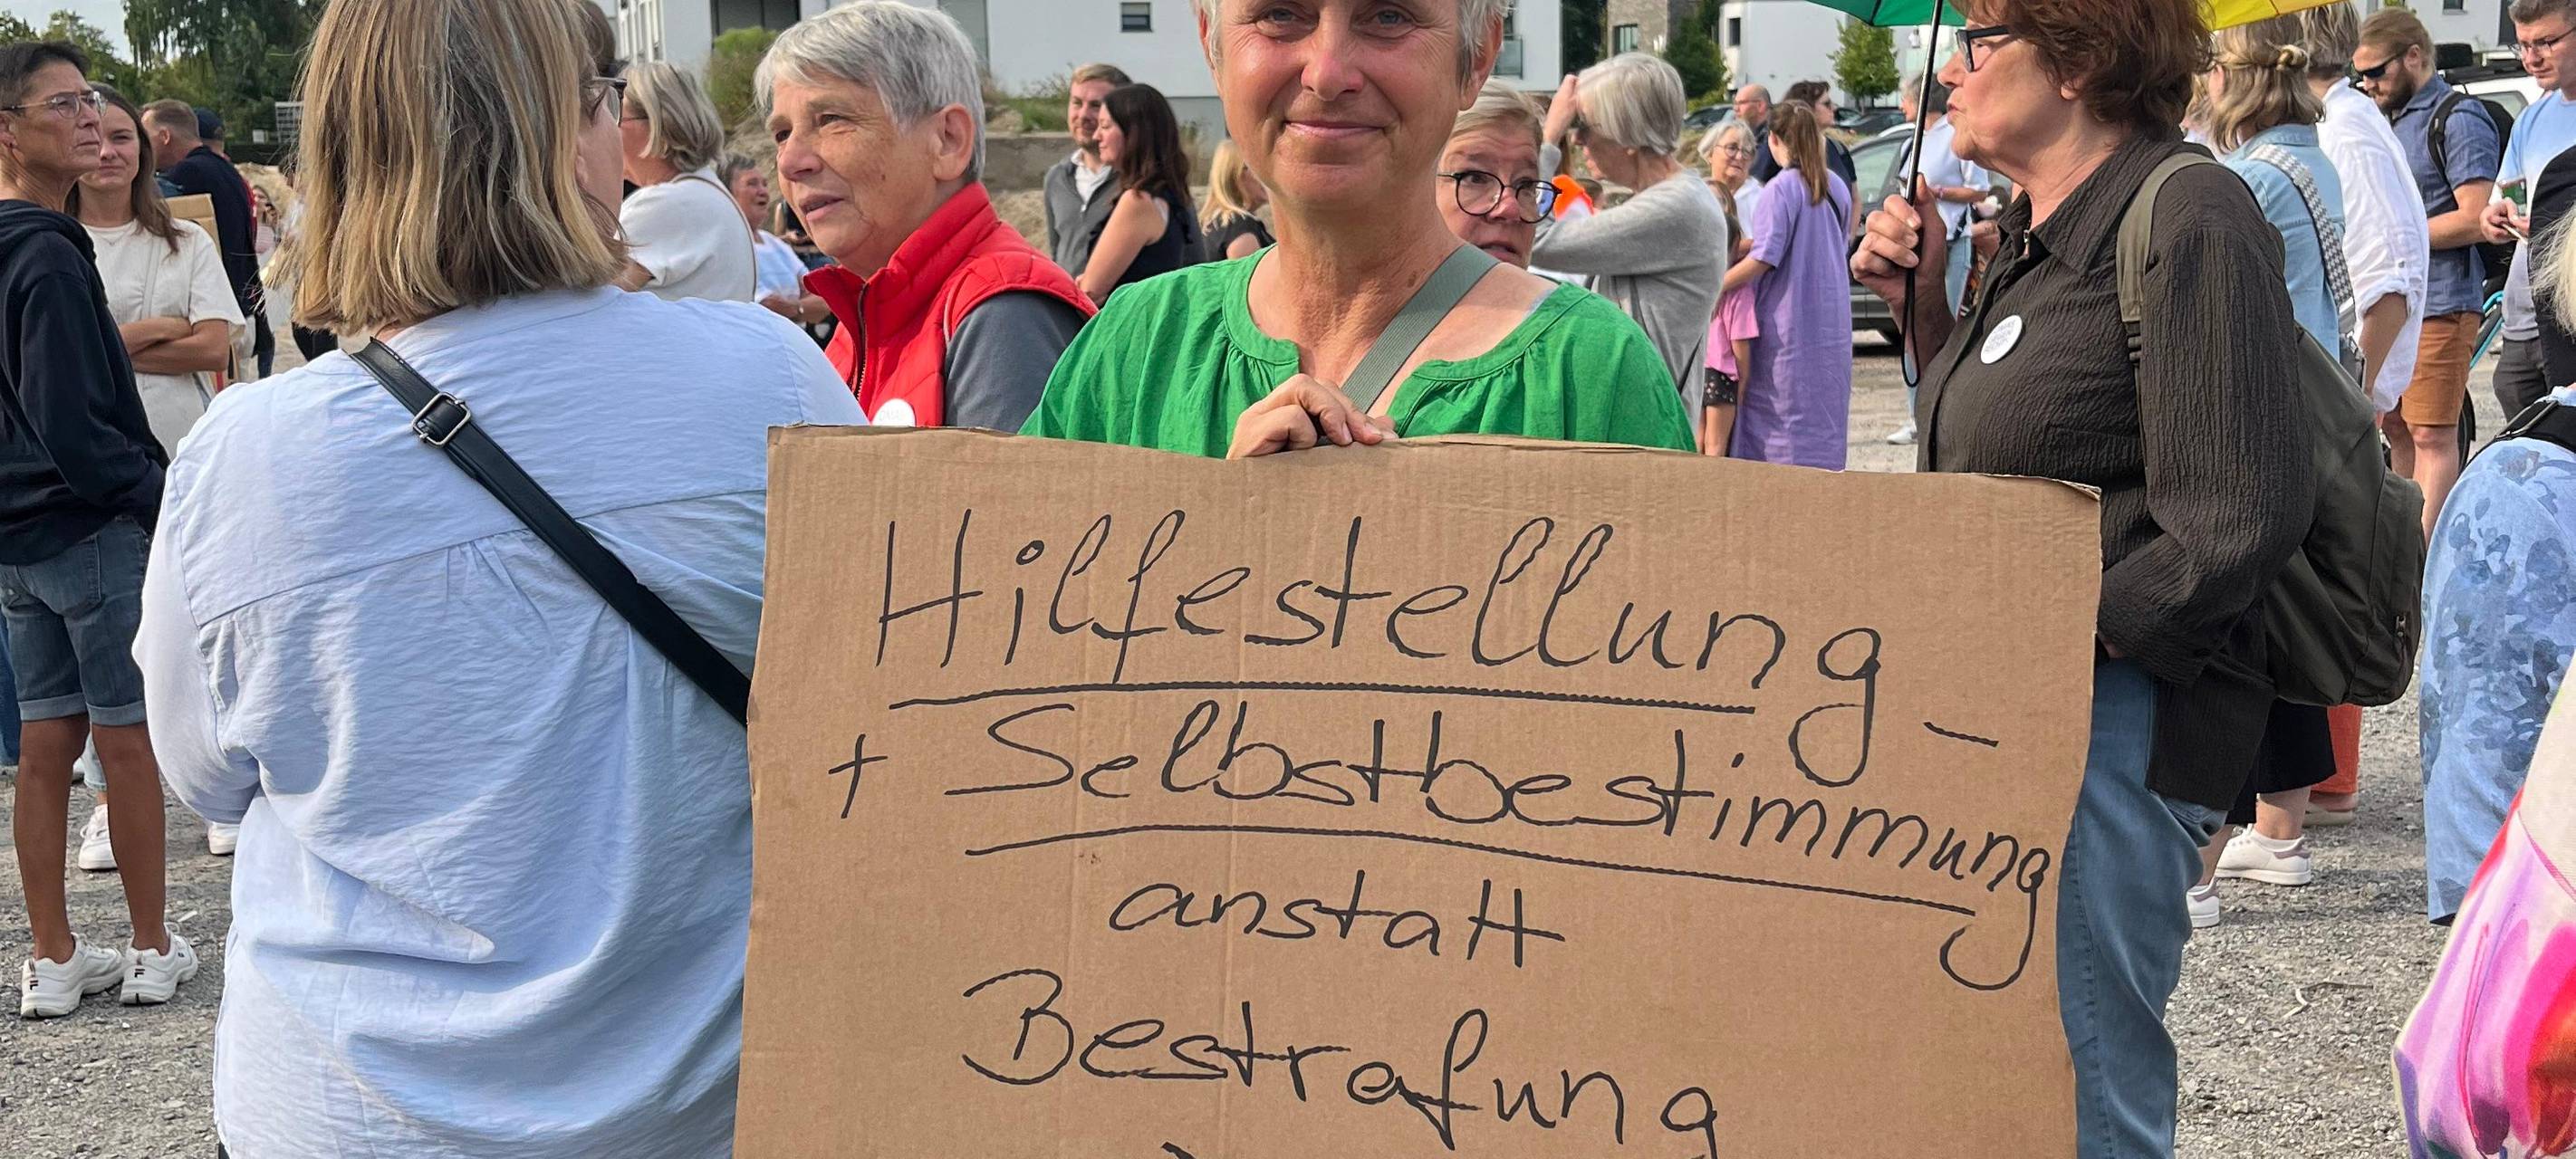 Hilfestellung -
+ Selbstbestimmung
anstatt
Bestrafung